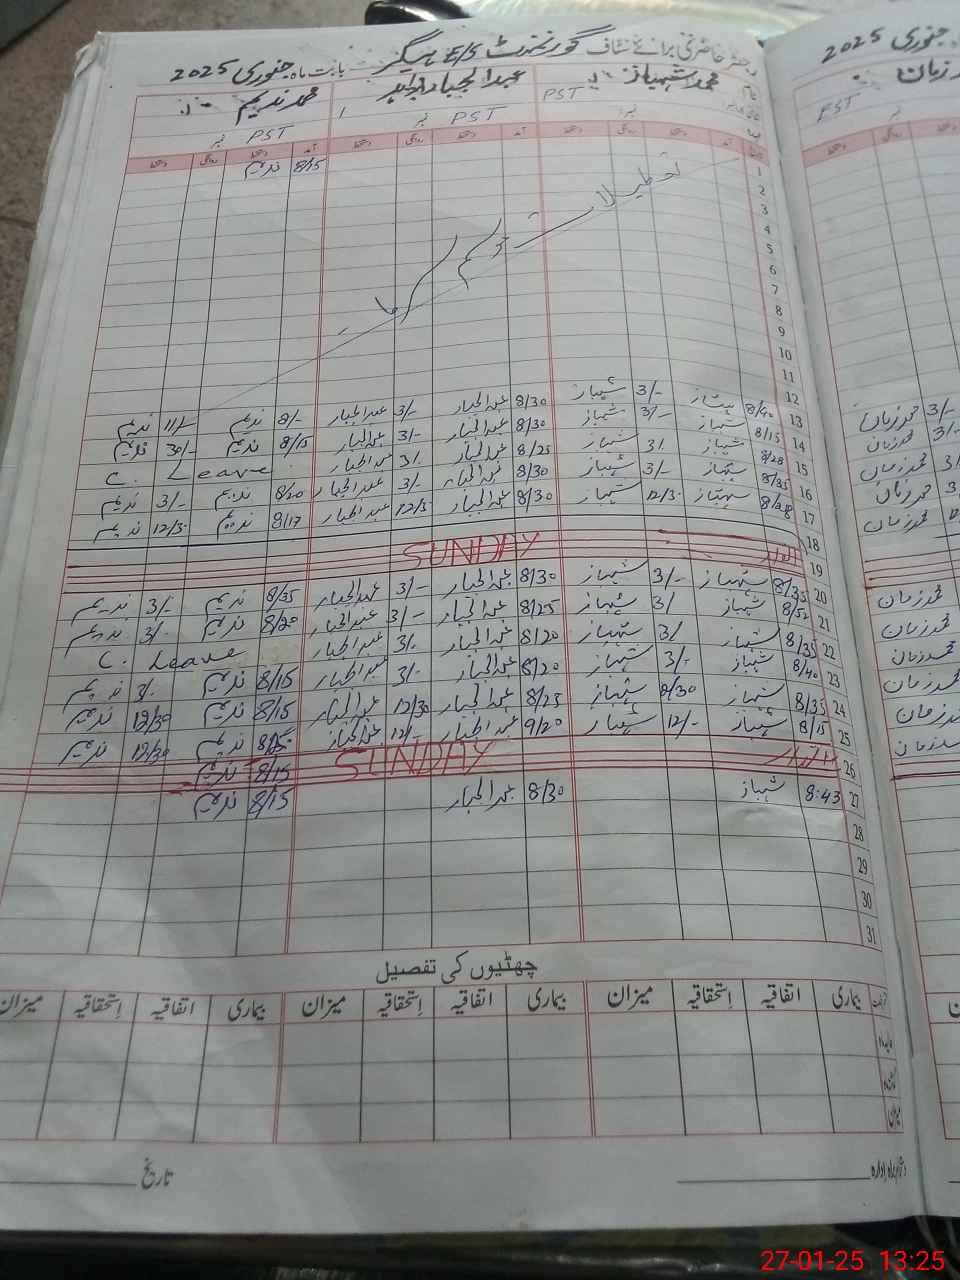 رجسٹر حاضری برائے سٹاف گورنمنٹ E/S ہیگر بابت ماہ جنوری 2025
محمد شہباز عبدالجبار محمد ندیم
PST PST PST
1 8/15 ندیم
2
3
4
5
6
7
8
9
10
11
تعطیلات موسم گرما
12
13 8/40 شہباز 3/- شہباز 8/30 عبدالجبار 3/- عبدالجبار 8/- ندیم 11/- ندیم
14 8/15 شہباز 3/- شہباز 8/30 عبدالجبار 3/- عبدالجبار 8/15 ندیم 30/- ندیم
15 8/28 شہباز 3/ شہباز 8/25 عبدالجبار 3/ عبدالجبار C. Leave
16 8/35 شہباز 3/- شہباز 8/30 عبدالجبار 3/- عبدالجبار 8/20 ندیم 3/- ندیم
17 شہباز 12/3. شہباز 8/30 عبدالجبار 12/3. عبدالجبار 8/17 ندیم 12/30 ندیم
18
19 اتوار SUNDAY
20 8/35 شہباز 3/- شہباز 8/30 عبدالجبار 3/- عبدالجبار 8/35 ندیم 3/- ندیم
21 8/52 شہباز 3/ شہباز 8/25 عبدالجبار 3/- عبدالجبار 8/20 ندیم 3/- ندیم
22 8/35 شہباز 3/ شہباز 8/20 عبدالجبار 3/. عبدالجبار C. Leave
23 8/40 شہباز 3/- شہباز 8/20 عبدالجبار 3/- عبدالجبار 8/15 ندیم 3/. ندیم
24 8/35 شہباز شہباز 8/25 عبدالجبار 12/30 عبدالجبار 8/15 ندیم 12/30 ندیم
25 8/15 شہباز 12/- شہباز 9/20 عبدالجبار 12/- عبدالجبار 8/15 ندیم 12/30 ندیم
26 اتوار SUNDAY 8/15 ندیم
27 8:43 شہباز 8/30 عبدالجبار 8/15 ندیم
28
29
30
31
چھٹیوں کی تفصیل
بیماری اتفاقیہ استحقاقیہ میزان بیماری اتفاقیہ استحقاقیہ میزان بیماری اتفاقیہ استحقاقیہ میزان
میزان
تاریخ
جنوری 2025
زمان
PST
3/- محمد زمان
3/- محمد زمان
محمد زمان
محمد زمان
محمد زمان
محمد زمان
محمد زمان
محمد زمان
محمد زمان
محمد زمان
محمد زمان
27-01-25 13:25